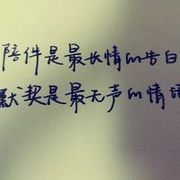 陪伴是最长情的告白
默契是最无声的情